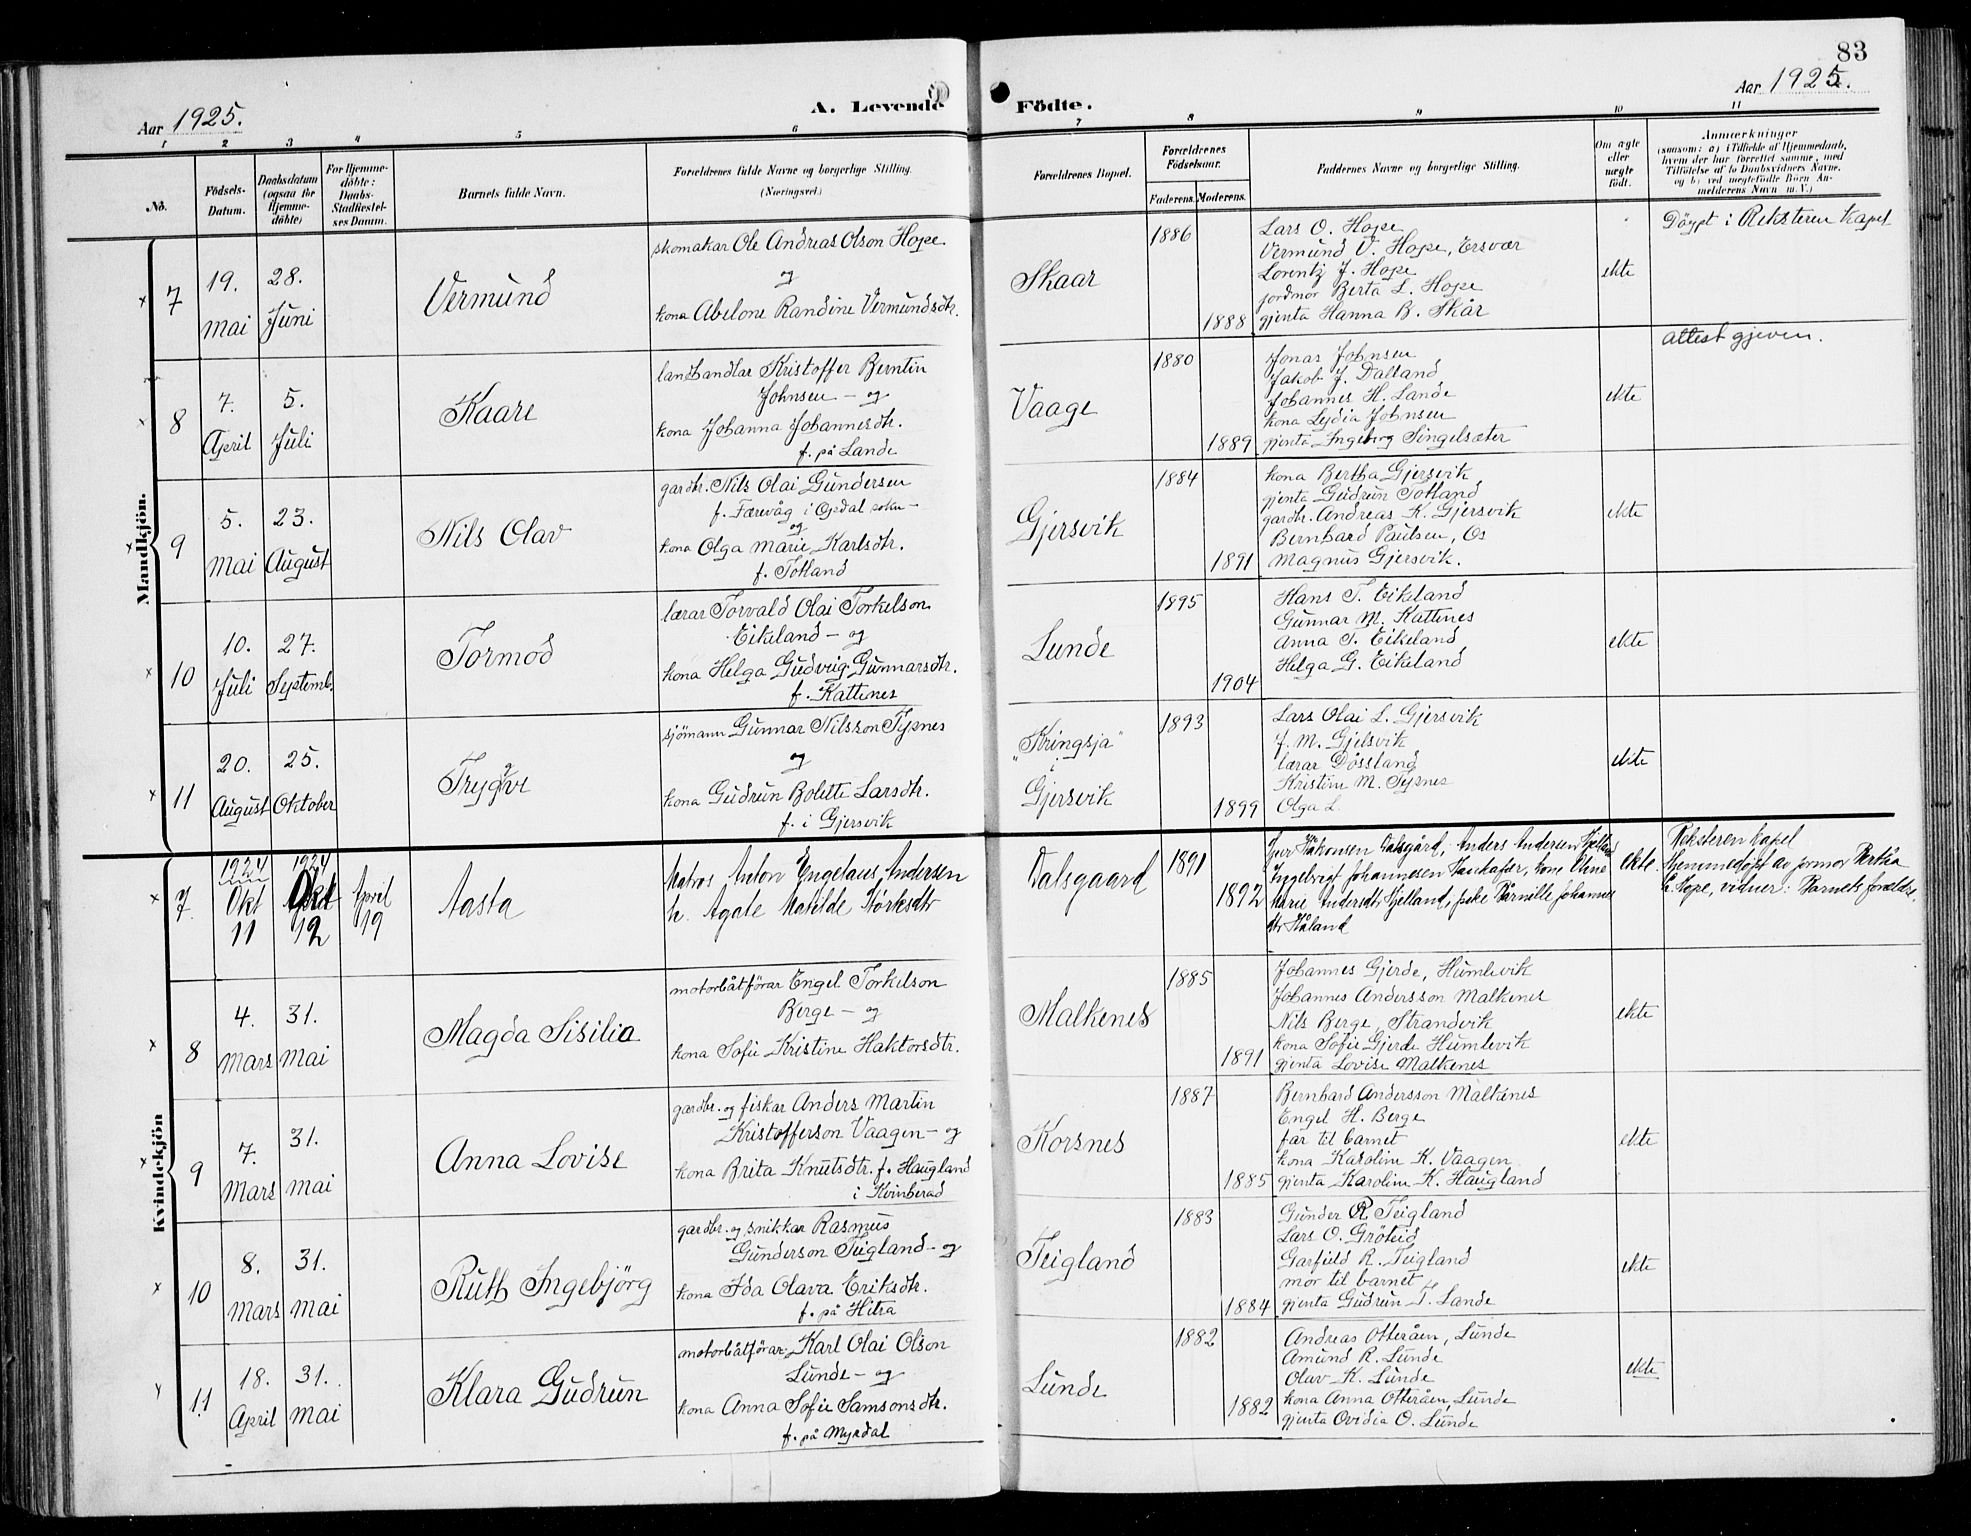 83
Aar 1925.
A. Levende Födte.
Aar 1925.
1 2 3 4 5 6 7 8 9 10 11
No.
Födsels-Datum.
Daabsdatum (ogsaa for Hjemme-döbte)
For Hjemme-döbte: Daabs-Stadfæstel-ses Datum.
Barnets fulde Navn.
Forældrenes fulde Navne og borgerlige Stilling.
(Næringsvei.)
Forældrenes Bopæl.
Forældrenes Födselsaar.
Faderens. Moderens.
Faddernes Navne og borgerlige Stilling.
Om ægte eller uægte födt.
Anmærkninger
(saasom: a) i Tilfælde af Hjemmedaab, hvem der har forrettet samme, med Tilföielse af to Daabsvidners Navne, og b) ved uægtefödte Börn Anmelderens Navn m. V.)
Mandkjön.
7
19. Mai
28. Juni
Vermund
skomakar Ole Andreas Olson Hope
og
kona Abelone Randine Vermundsdtr.
Skaar
1886
1888
Lars O. Hope
Vermund V. Hope, Ersvær
Lorentz J. Hope
jordmor Berta L. Hope
gjenta Hanna B. Skår
ekte
Döypt i Reksteren kapel
8
7. April
5. Juli
Kaare
landhandlar Kristoffer Berntin
Johnsen – og
kona Johanna Johannesdtr.
f. på Lande
Vaage
1880
1889
Jonas Johnsen
Jakob J. Dalland
Johannes H. Lande
kona Lydia Johnsen
gjenta Ingeborg Singelsæter
ekte
attest gjeven.
9
5. Mai
23. August
Nils Olav
gardbr. Nils Olai Gundersen
f. Færevåg i Opdal sokn –
og
kona Olga Marie Karlsdtr.
f. Totland
Gjersvik
1884
1891
kona Bertha Gjersvik
gjenta Gudrun Totland
gardbr. Andreas K. Gjersvik
Bernhard Paulsen, Os
Magnus Gjersvik.
ekte
10
10. Juli
27. Septemb.
Tormod
lærar Torvald Olai Torkelson
Eikeland – og
kona Helga Gudveig Gunnarsdtr.
f. Kattenes
Lunde
1895
1904
Hans T. Eikeland
Gunnar M. Kattnes
Anna T. Eikeland
Helga G. Eikeland
ekte
11
20. August
25. Oktober
Trygve
sjömann Gunnar Nilsson Tysnes
og
kona Gudrun Bolette Larsdtr.
f. i Gjersvik
"Kringsja"
i
Gjersvik
1893
1899
Lars Olai L. Gjersvik
J. M. Gjelsvik
lærar Døssland
Kristine M. Tysnes
Olga L.
ekte
Kvindekjön
7.
1924 Okt 11
1924 Okt 12
April 19
Aasta
Matros Anton Engelaus Andersen
h. Agate Matilde Størksdtr
Dalsgaard
1891
1892
Håkonsen Dalsgård, Anders Andersen Hjelland
Johannesen Haukafær, kone Eline
Marie Andersdtr Hjelland, pike Pernille Johannes
dtr Håland
ekte.
Reksteren kapel
Hjemmedöpt av jormor Bertha
L. Hope, vidner: Barnets forældre.
8
4. Mars
31. Mai
Magda Sisilia
motorbåtförar Engel Torkelson
Berge – og
kona Sofie Kristine Haktorsdtr.
Malkenes
1885
1891
Johannes Gjerde, Humlevik
Johannes Andersson Malkenes
Nils Berge, Strandvik
kona Sofie Gjerde Humlevik
gjenta Lovise Malkenes
ekte
9
7. Mars
31. Mai
Anna Lovise
gardbr. og fiskar Anders Martin
Kristofferson Vaagen – og
kona Brita Knutsdtr. f. Haugland
i Kvinherad
Korsnes
1887
1885
Bernhard Andersson Malkenes
Engel H. Berge
far til barnet
kona Karoline K. Vaagen
gjenta Karoline K. Haugland
ekte
10
8. Mars
31. Mai
Ruth Ingebjörg
gardbr. og snikkar Rasmus
Gunderson Teigland – og
kona Ida Olava Eriksdtr.
f. på Hitra
Teigland
1883
1884
Gunder R. Teigland
Lars O. Gröteid
Garfield R. Teigland
mor til barnet
gjenta Gudrun T. Lande
ekte
11
18. April
31. Mai
Klara Gudrun
motorbåtförar Karl Olai Olson
Lunde – og
kona Anna Sofie Samsonsdtr.
f. på Myrdal
Lunde
1882
1882
Andreas Otteråen, Lunde
Amund R. Lunde
Olav K. Lunde
kona Anna Otteråen, Lunde
gjenta Ovidia O. Lunde
ekte